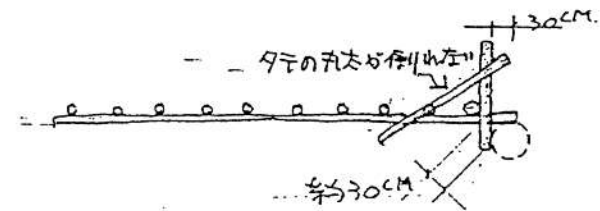 30CM.
タテの丸太が倒れ左い
約30CM